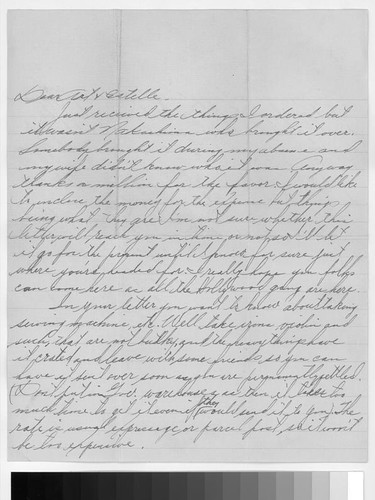 Dear Art & Estelle.
Just received the things I ordered but
it wasn't Nakashima who brought it over.
Somebody brought it during my absence and
my wife didn't know who it was. Anyway
thanks a million for the favor & I would like
to inclose the money for the expense but things
being what they are I'm not sure whether this
letter will reach you in time or not so I'll let
it go for the present until I know for sure just
where you're headed for. I really hope you folks
can come here as all the Hollywood gang are here.
In your letter you want to know about taking
sewing machine, etc. Well take your violin and
such, that are not bulky, and the heavy things have
it crated and leave with some friends so you can
have it sent over soon as you are permanently settled.
(Don't put in Gov. warehouse, as then it takes too
much time to get it even if they would send it to you. The
rate is usual expressage or parcel post so it won't
be too expensive.